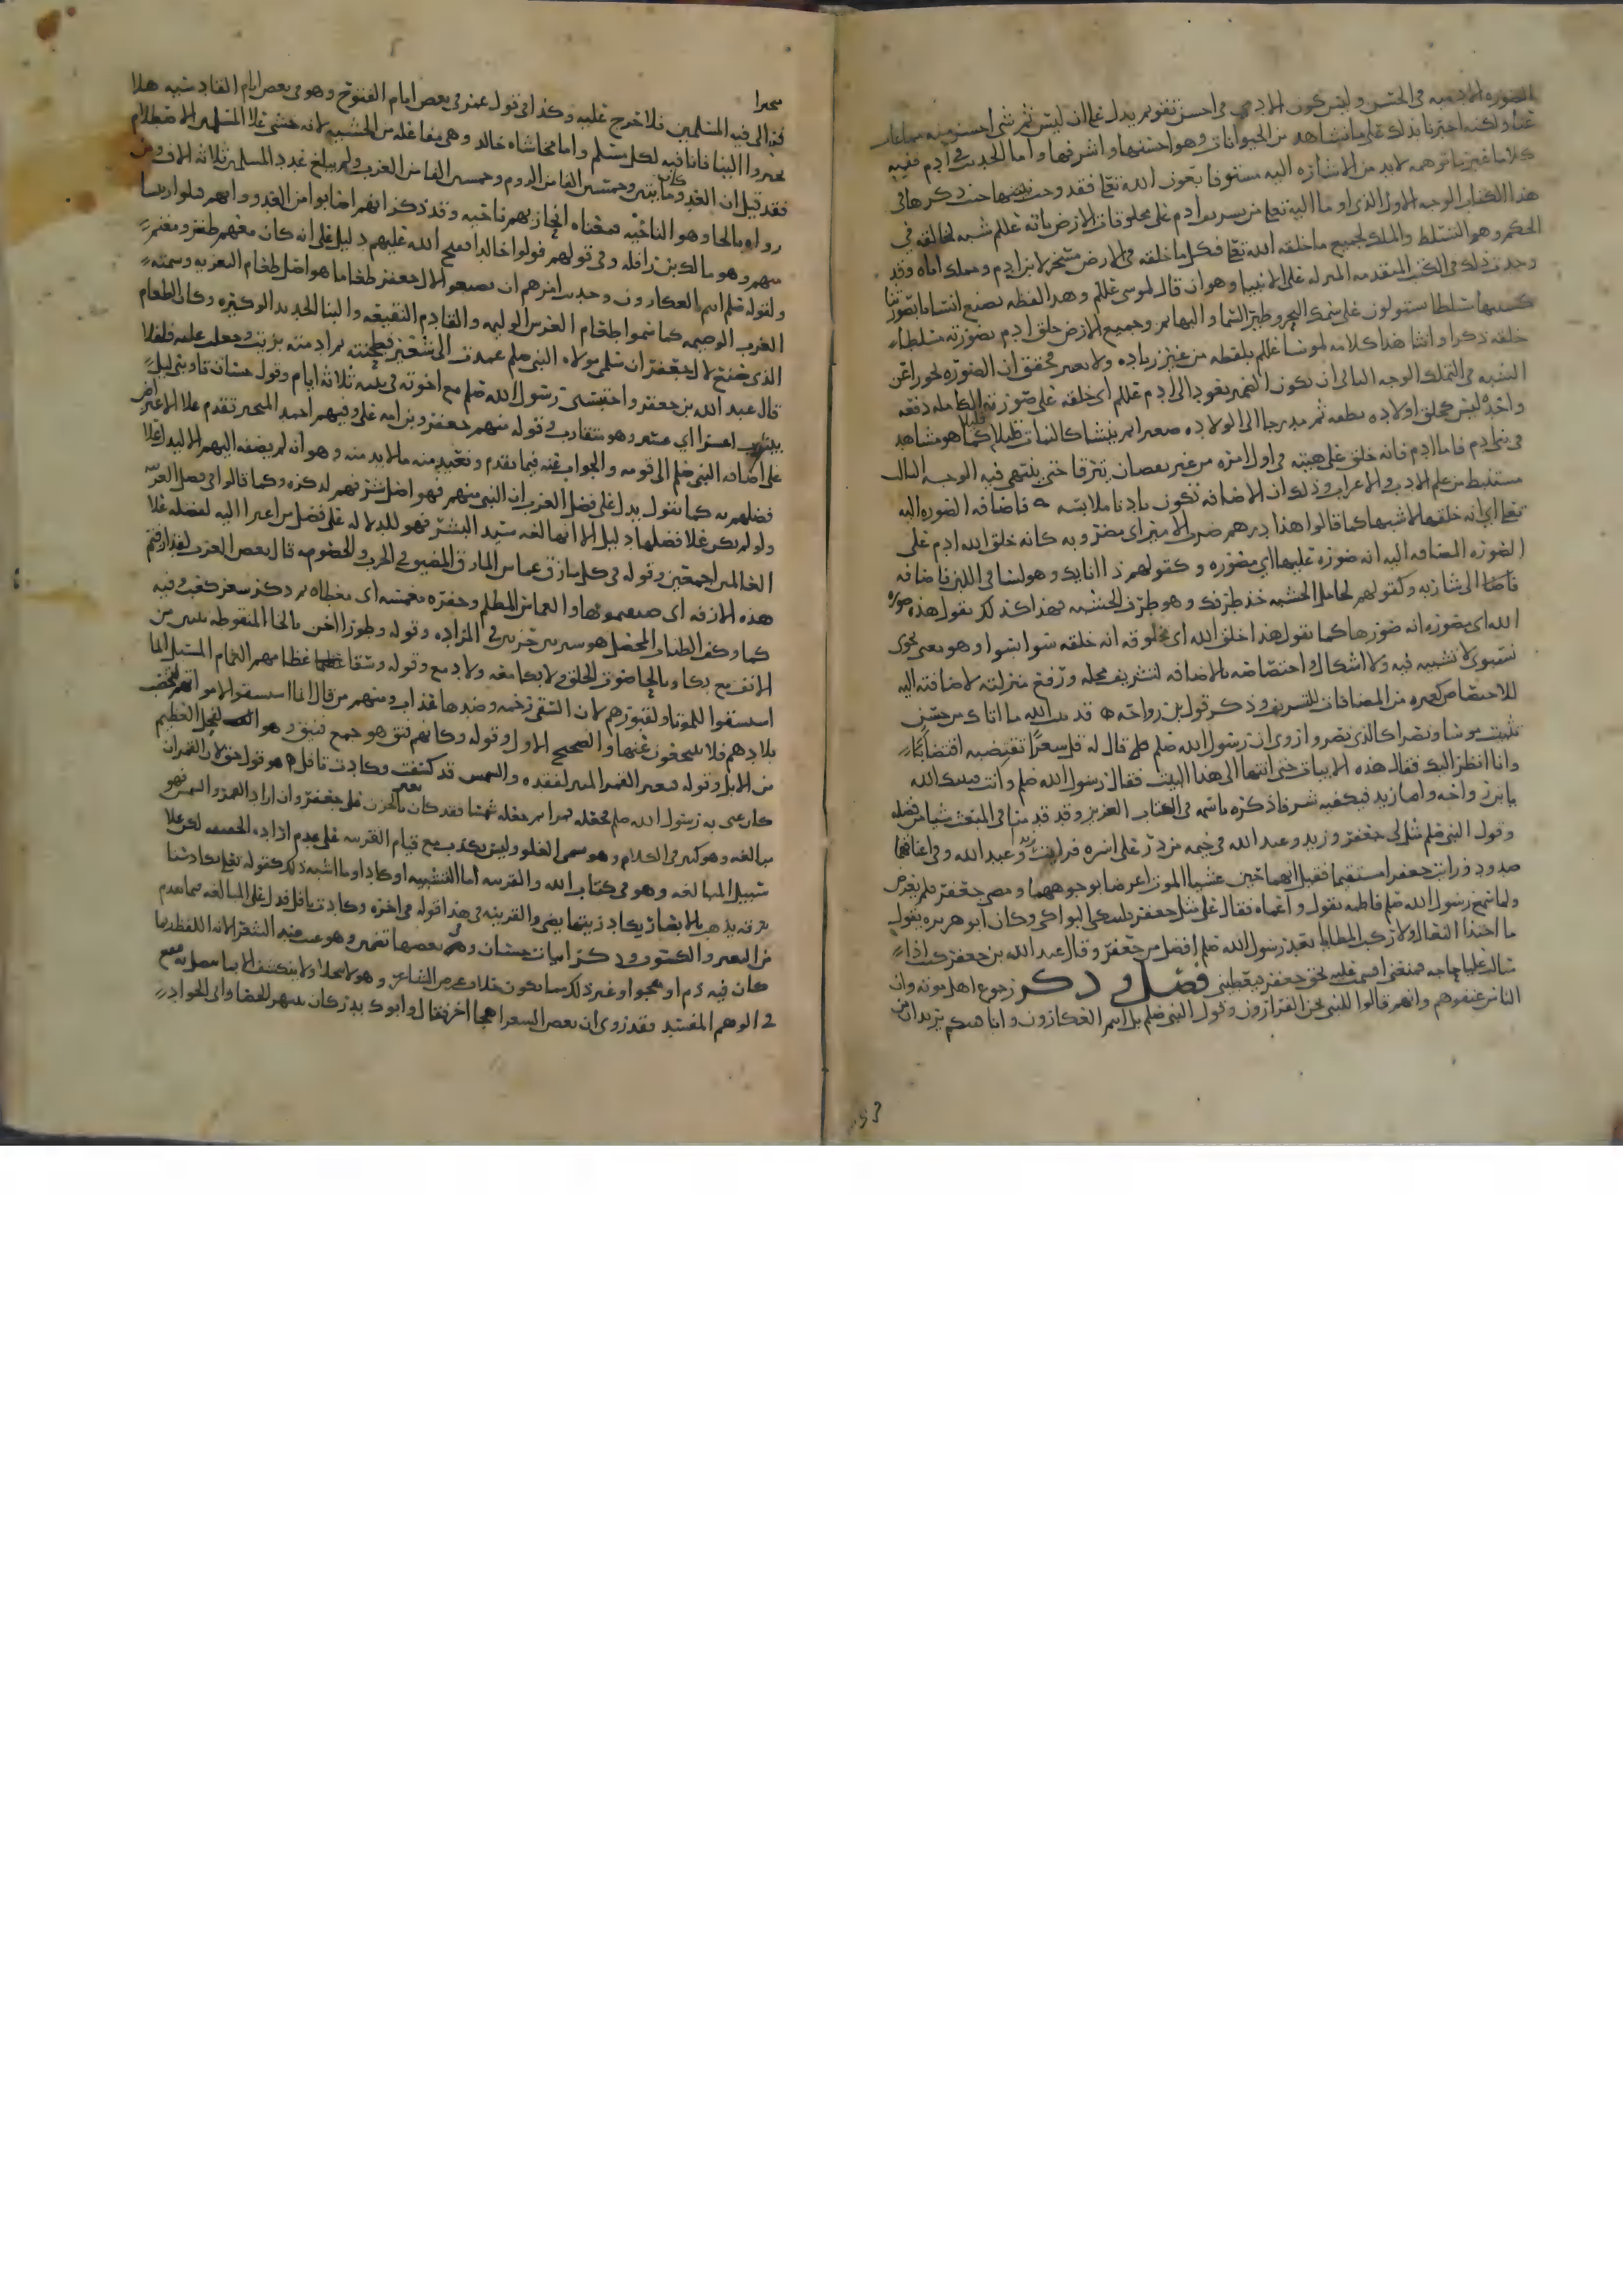 الصوره الادميه في الحسن وليس كون الادمي في احسن تقويم يدل على ان ليس ثم شي احسن منه
عنا ولكنه اخبرنا بذلك على ما نشاهد من الحيوانات وهو احسنها واشرفها واما الحديث في ادم ففيه
كلاما غير ما توهمه لابد من الاشاره اليه مستوفا بعون الله تعا فقد وحب
هذا الكتاب الوجه الاول الذي اوما اليه تعا من ادم على مخلوقات الارض بانه علم شبه لخالقه في
الحكم وهو التسلط والملك لجميع ما خلقه الله تعا فكل ما خلقه في الارض مسخر لابن ادم وملك اياه وقد
وجدت ذلك في الكتب المتقدمه المنزله على الانبيا وهو ان قال لموسى علىلم وهذا لفظه نصنع انسانا بصورتنا
كشبهنا مسلطا يستولون على سمك البحر وطير السما والبهايم وجميع الارض خلق ادم بصورته مسلطا
خلقه ذكرا وانثا هذا كلامه لموسا علىلم بلفظه من غير زياده ولا
التشبه في التملك الوجه الثاني ان تكون الضمير يعود الى ادم علىلم اي خلقه على صورته الكامله دفعه
واحده ليس كخلق اولاده نطفه ثم مدرجا الى الولاده صغيرا ثم ينشا كالنبات قليلا كما هو مشاهد
في بني ادم فاما ادم فانه خلق على هيئته في اول امره من غير نقصان يترقا حتى ينتهي فيه الوجه الثالث
مستنبط من علم الادب والاعراب وذلك ان الاضافه تكون بادنا ملابسه فاضافه الصوره اليه
تعا اي انه خلقها لا شبهها كما قالوا هذا درهم ضرب الامير اي مضروبه كانه خلق الله ادم على
الصوره المضافه اليه انه صوره عليها اي مصوره وكقولهم ذا اناىك وهو لسنا في اللبن فاضافه
فاضافا الى شاربه وكقولهم لحامل الخشبه خذ طرفك وهو طرف الخشبه فهذا كذلك نقول هذه صوره
الله اي مصوره انه صورها كما نقول هذا خلق الله اي مخلوقه انه خلقه سوا بسوا وهو معنى نحوي
نسبوي لا تشبيه فيه ولا اشكال واختصاصه بالاضافه لتشريف محله ورفع منزلته لاضافته اليه
للاختصاص كغيره من المضافات للتشريف وذكر قول بن رواحه قد ثبت الله ما اتاك من حسن
تثبيت موسا ونصرا كالذي نصروا روي ان رسول الله صلم قال له قل شعرا تقتضبه اقتضابا
وانا انظر اليك فقال هذه الابيات حتى انتها الى هذا البيت فقال رسول الله صلم وانت فثبتك الله
يا بن رواحه واما زيد فيكفيه شرفا ذكره باسمه في الكتاب العزيز وقد قدمنا في المبعث شيا من فضله
وقول النبي صلم مثل لي جعفر وزيد وعبد الله في خيمه من در على اسره فرايت زيد وعبد الله وفي اعناقهما
صدود ورايت جعفر مستقيما فقيل انهما حين غشيا الموت اعرضا بوجوههما ومضى جعفر فلم يعرض
ولما سمع رسول الله صلم فاطمه تقول واعماه فقال على مثل جعفر فلتبك البواكي وكان ابو هريره يقول
ما احتذا النعال ولا ركب المطايا بعد رسول الله صلم افضل من جعفر وقال عبد الله بن جعفر كنت اذا
سالت عليا حاجه فمنعني اقسمت عليه بحق جعفر فيعطيني فصل وذكر رجوع اهل موته وان
الناس عنفوهم وانهم قالوا للنبي نحن الفرارون وقول النبي صلم بل انتم العكارون وانا فئتكم يريد ان من
متحيزا
فر الى فيه المسلمين فلا حرج عليه وكذا في قول عمر في بعض ايام الفتوح وهو في بعض ايام القادسيه هلا
تحيزوا الينا فانا فيه لكل مسلم واما مخاشاه خالد وهي مفاعله من الخشيه لانه خشى علا المسلمين الاصطلام
فقد قيل ان العدو كان مايتين وخمسين الفا من الروم وخمسين الفا من العرب ولم يبلغ عدد المسلمين ثلاثه الاف ومن
رواه بالحا وهو الناحيه فمعناه انحاز بهم ناحيه وقد ذكر انهم اصابوا من العدو وانهم قتلوا رييسا
منهم وهو مالك بن زافله وفي قولهم فولوا خالدا ففتح الله عليهم دليل على انه كان معهم ظفر ومغنم
ولقوله صلم انتم العكارون وحديث امرهم ان يصنعوا لال جعفر طعاما هو اصل طعام التعزيه وسمته
العرب الوضيمه كما سموا طعام العرس الوليمه والقادم النقيعه والبنا الجديد الوكيره وكان الطعام
الذي صنع لال جعفر ان سلمى مولاه النبي صلم عمدت الى شعير فطحنته ثم ادمته بزيت وجعلت عليه فلفلا
قال عبد الله بن جعفر واحتبسني رسول الله صلم مع اخوته في بيته ثلاثه ايام وقول حسان تاوبني ليل
بيثرب اعسر اي عسر وهو متقارب وقوله منهم جعفر وبن امه علي وفيهم احمد المتخير تقدم علا الاعتراض
على اضافه النبي صلم الى قومه والجواب عنه فيما تقدم ونعيد منه ما لابد منه وهو انه لم يضفه اليهم الا ليدل علا
فضلهم به كما نقول يدل على فضل العرب ان النبي منهم فهو افضل شرفهم لذكره وكما قالوا في فضل العربيه
ولو لم يكن علا فضلها دليل الا انها لغه سيد البشر فهو للدلاله على فضل من اعتزا اليه لفضله علا
العالمين اجمعين وقوله في كل مازق عماس المازق المضيق في الحرب والخصومه قال بعض العرب لقد ازفتم
هذه الازفه اي ضيقتموها والعماس المظلم وحفره معمسه اي مغطاه ثم ذكر شعر كعب وفيه
كما وكف الطباب المخضل هو سير بين خرزين في المزاده وقوله وطورا اخن بالخا المنقوطه حنين من
الانف مع بكا وبالحا صوت الحلق ولا بكا معه ولا دمع وقوله وسقا عظامهم الغمام المسبل انما
استسقوا للموتا ولقبورهم لان السقي رحمه وضدها عذاب ومنهم من قال انما استسقوا لامواتهم لتخصب
بلادهم فلا يبعدون عنها والصحيح الاول وقوله وكانهم فنق هو جمع فنيق وهو الفحل العظيم
من الابل وقوله فتغير القمر المنير لفقده والشمس قد كسفت وكادت تافل هو قول حق لان القمر ان
كان عنى به رسول الله صلم فجعله قمرا ثم جعله شمسا فقد كان تغير بالحزن على جعفر وان اراد القمر والشمس فهو
مبالغه وهو كثير في الكلام وهو يسمى الغلو وليس بكذب مع قيام القرينه على عدم اراده الحقيقه لكن علا
سبيل المبالغه وهو في كتاب الله والقرينه اما التشبيه او كاد او ما اشبه ذلك كقوله تعا يكاد سنا
برقه يذهب بالابصار يكاد زيتها يضي والقرينه في هذا قوله في اخره وكادت تافل فدل على المبالغه فيما تقدم
من التغير والكسوف وذكر ابيات حسان وفي بعضها تضمين وهو عيب عند الشعر الا انه اللفظ
كان فيه ذم او هجوا وغير ذلك مما يكون خلاف غرض الشاعر وهو لا ينكشف الا بما يتصل به فيقع
في الوهم المفسد وقد روي ان بعض الشعرا هجا اخر فقال وابوك بدر كان ينتهس الخصا وابي الجواد
53